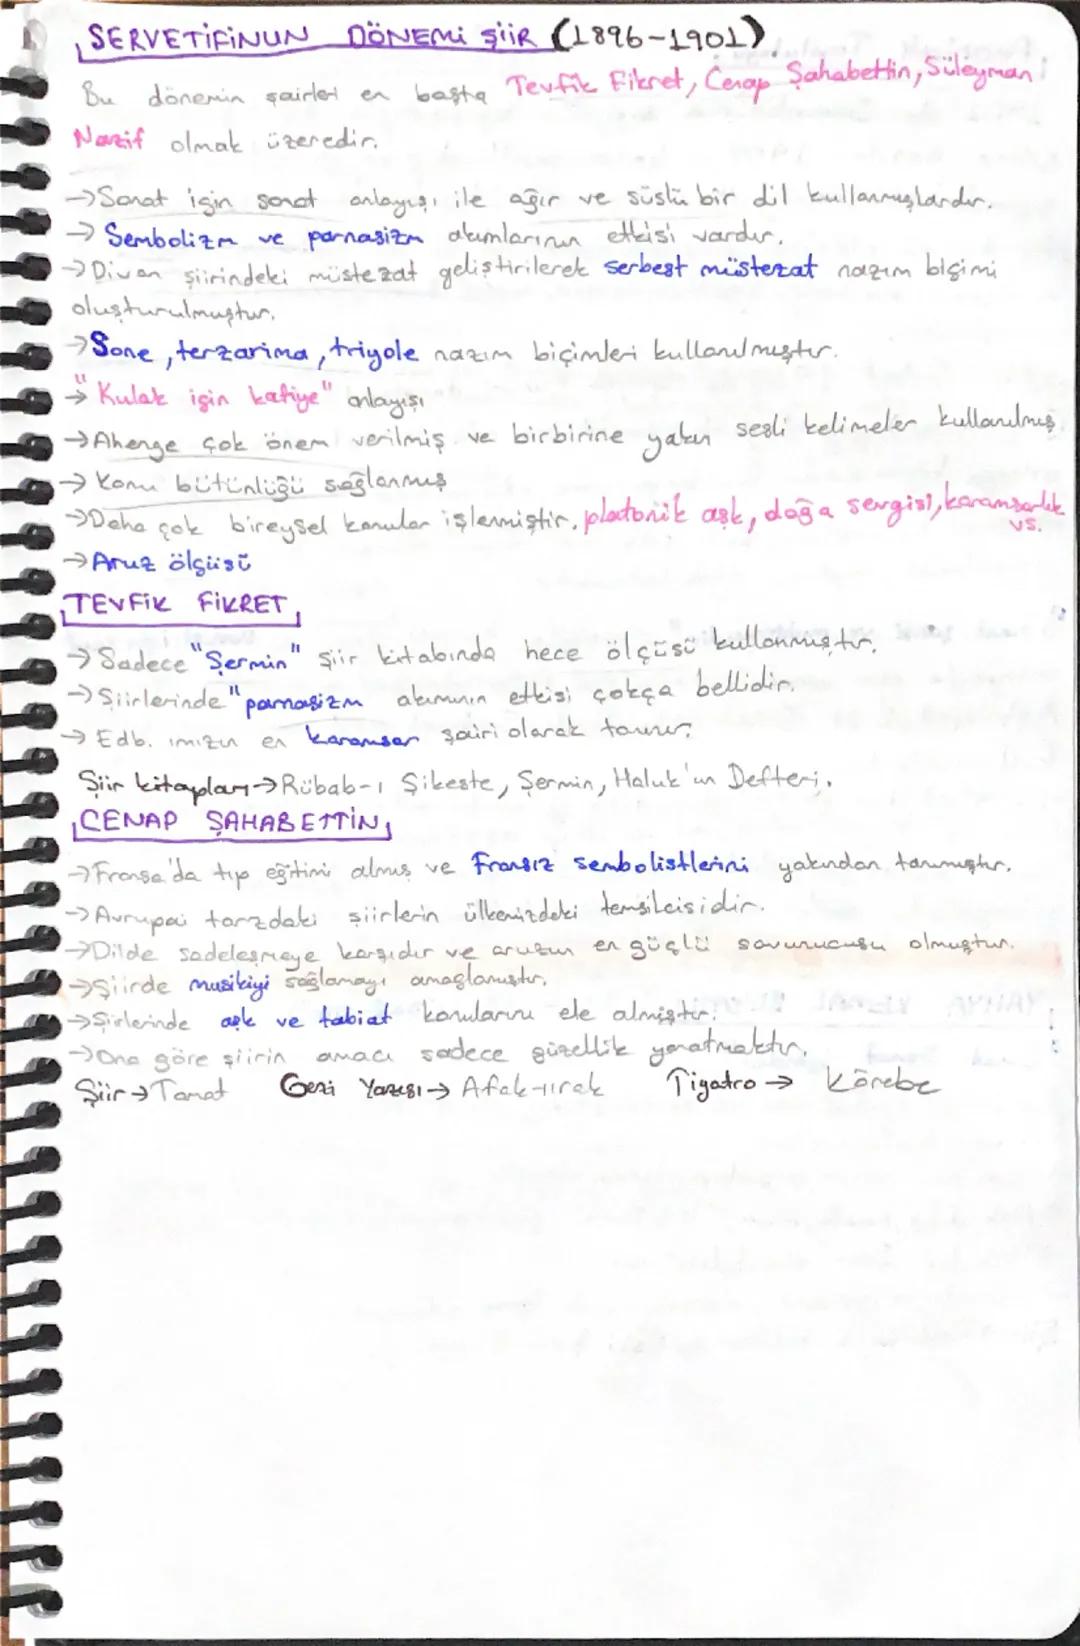 SERVETİFİNUN DÖNEMİ ŞİİR (1896-1901)
Bu dönemin şairleri en başta Tevfik Fikret, Cenap Şahabettin, Süleyman
Nazif olmak üzeredir.
→Sanat için sanat anlayışı ile ağır ve süslü bir dil kullanmışlardır.
→Sembolizm ve parnasizm akımlarının etkisi vardır.
→Divan şiirindeki müstezat geliştirilerek serbest müstezat nazım biçimi
oluşturulmuştur.
→Sone, terzarima, triyole nazım biçimleri kullanılmıştır.
→"Kulak için kafiye" anlayışı
→Ahenge çok önem verilmiş ve birbirine yakın sesli kelimeler kullanılmış
→Konu bütünlüğü sağlanmış
→Daha çok bireysel konular işlenmiştir. platonik aşk, doğa sevgisi, karamsarlık
vs.
→Aruz ölçüsü
TEVFİK FİKRET
→Sadece "Şermin" şiir kitabında hece ölçüsü kullanmıştır.
→Şiirlerinde "parnasizm akımının etkisi çokça bellidir.
→Edb. ımızın en karamsar şairi olarak tanınır.
Şiir kitapları→Rübab-ı Şikeste, Şermin, Haluk'un Defteri.
CENAP ŞAHABETTİN
→Fransa'da tıp eğitimi almış ve Fransız sembolistlerini yakından tanımıştır.
→Avrupai tarzdaki şiirlerin ülkemizdeki temsilcisidir.
→Dilde sadeleşmeye karşıdır ve aruzun en güçlü savunucusu olmuştur.
→Şiirde musikiyi sağlamayı amaçlamıştır.
→Şiirlerinde aşk ve tabiat konularını ele almıştır.
→Ona göre şiirin amacı sadece güzellik yaratmaktır.
Şiir→Tamat Gezi Yazısı→Afak-ıırak Tiyatro→ Körebe